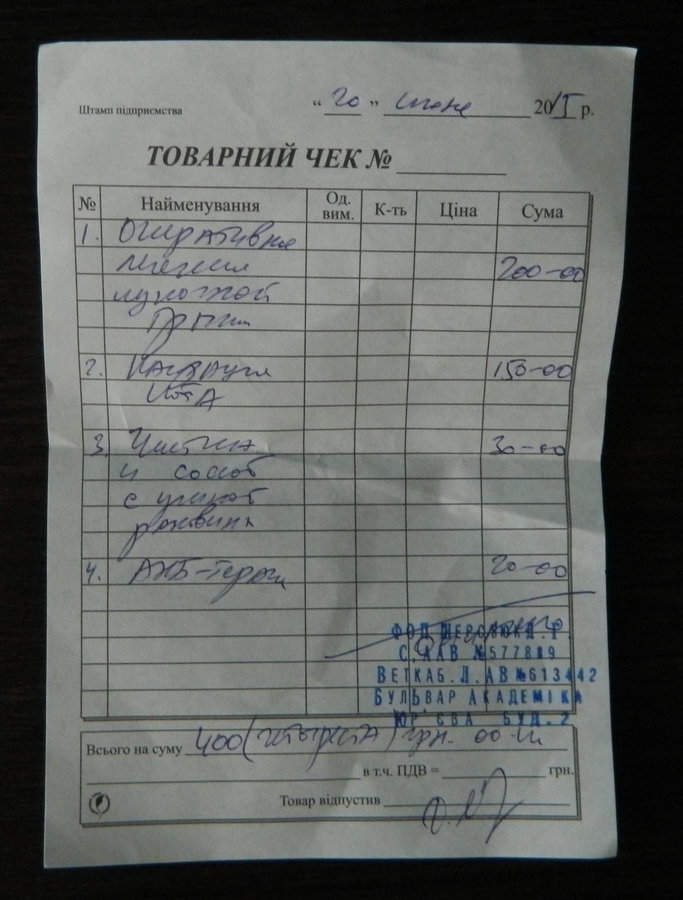 Штамп підприємства
“ 20 ” 201 р.
ТОВАРНИЙ ЧЕК №
№ Найменування Од. вим. К-ть Ціна Сума
1. Оперативное
лечение 200-00
пупочной
грыжи
2. Кастрация 150-00
кота
3. Чистка 30-00
и
с ушной
раковины
4. АКБ- 20-00
С. ААВ №577889
ВЕТКАБ. Л. АВ №613442
БУЛЬВАР АКАДЕМІКА
ЮР'ЄВА БУД. 2
Всього на суму 400 (четыреста) грн. 00
в т.ч. ПДВ = грн.
Товар відпустив